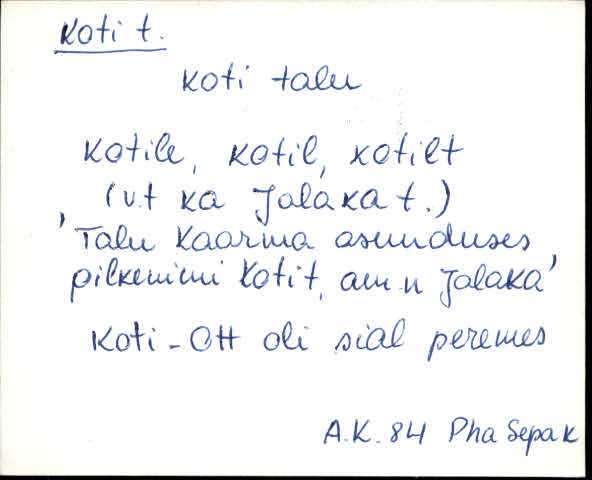 Koti t.
Koti talu
Kotile, Kotil, Kotilt
(vt ka Jalaka t.)
'Talu Kaarma asunduses,
pilkenimi Koti t, am. n Jalaka'
Koti-Ott oli sial peremes
A.K. 84 Pha Sepa k